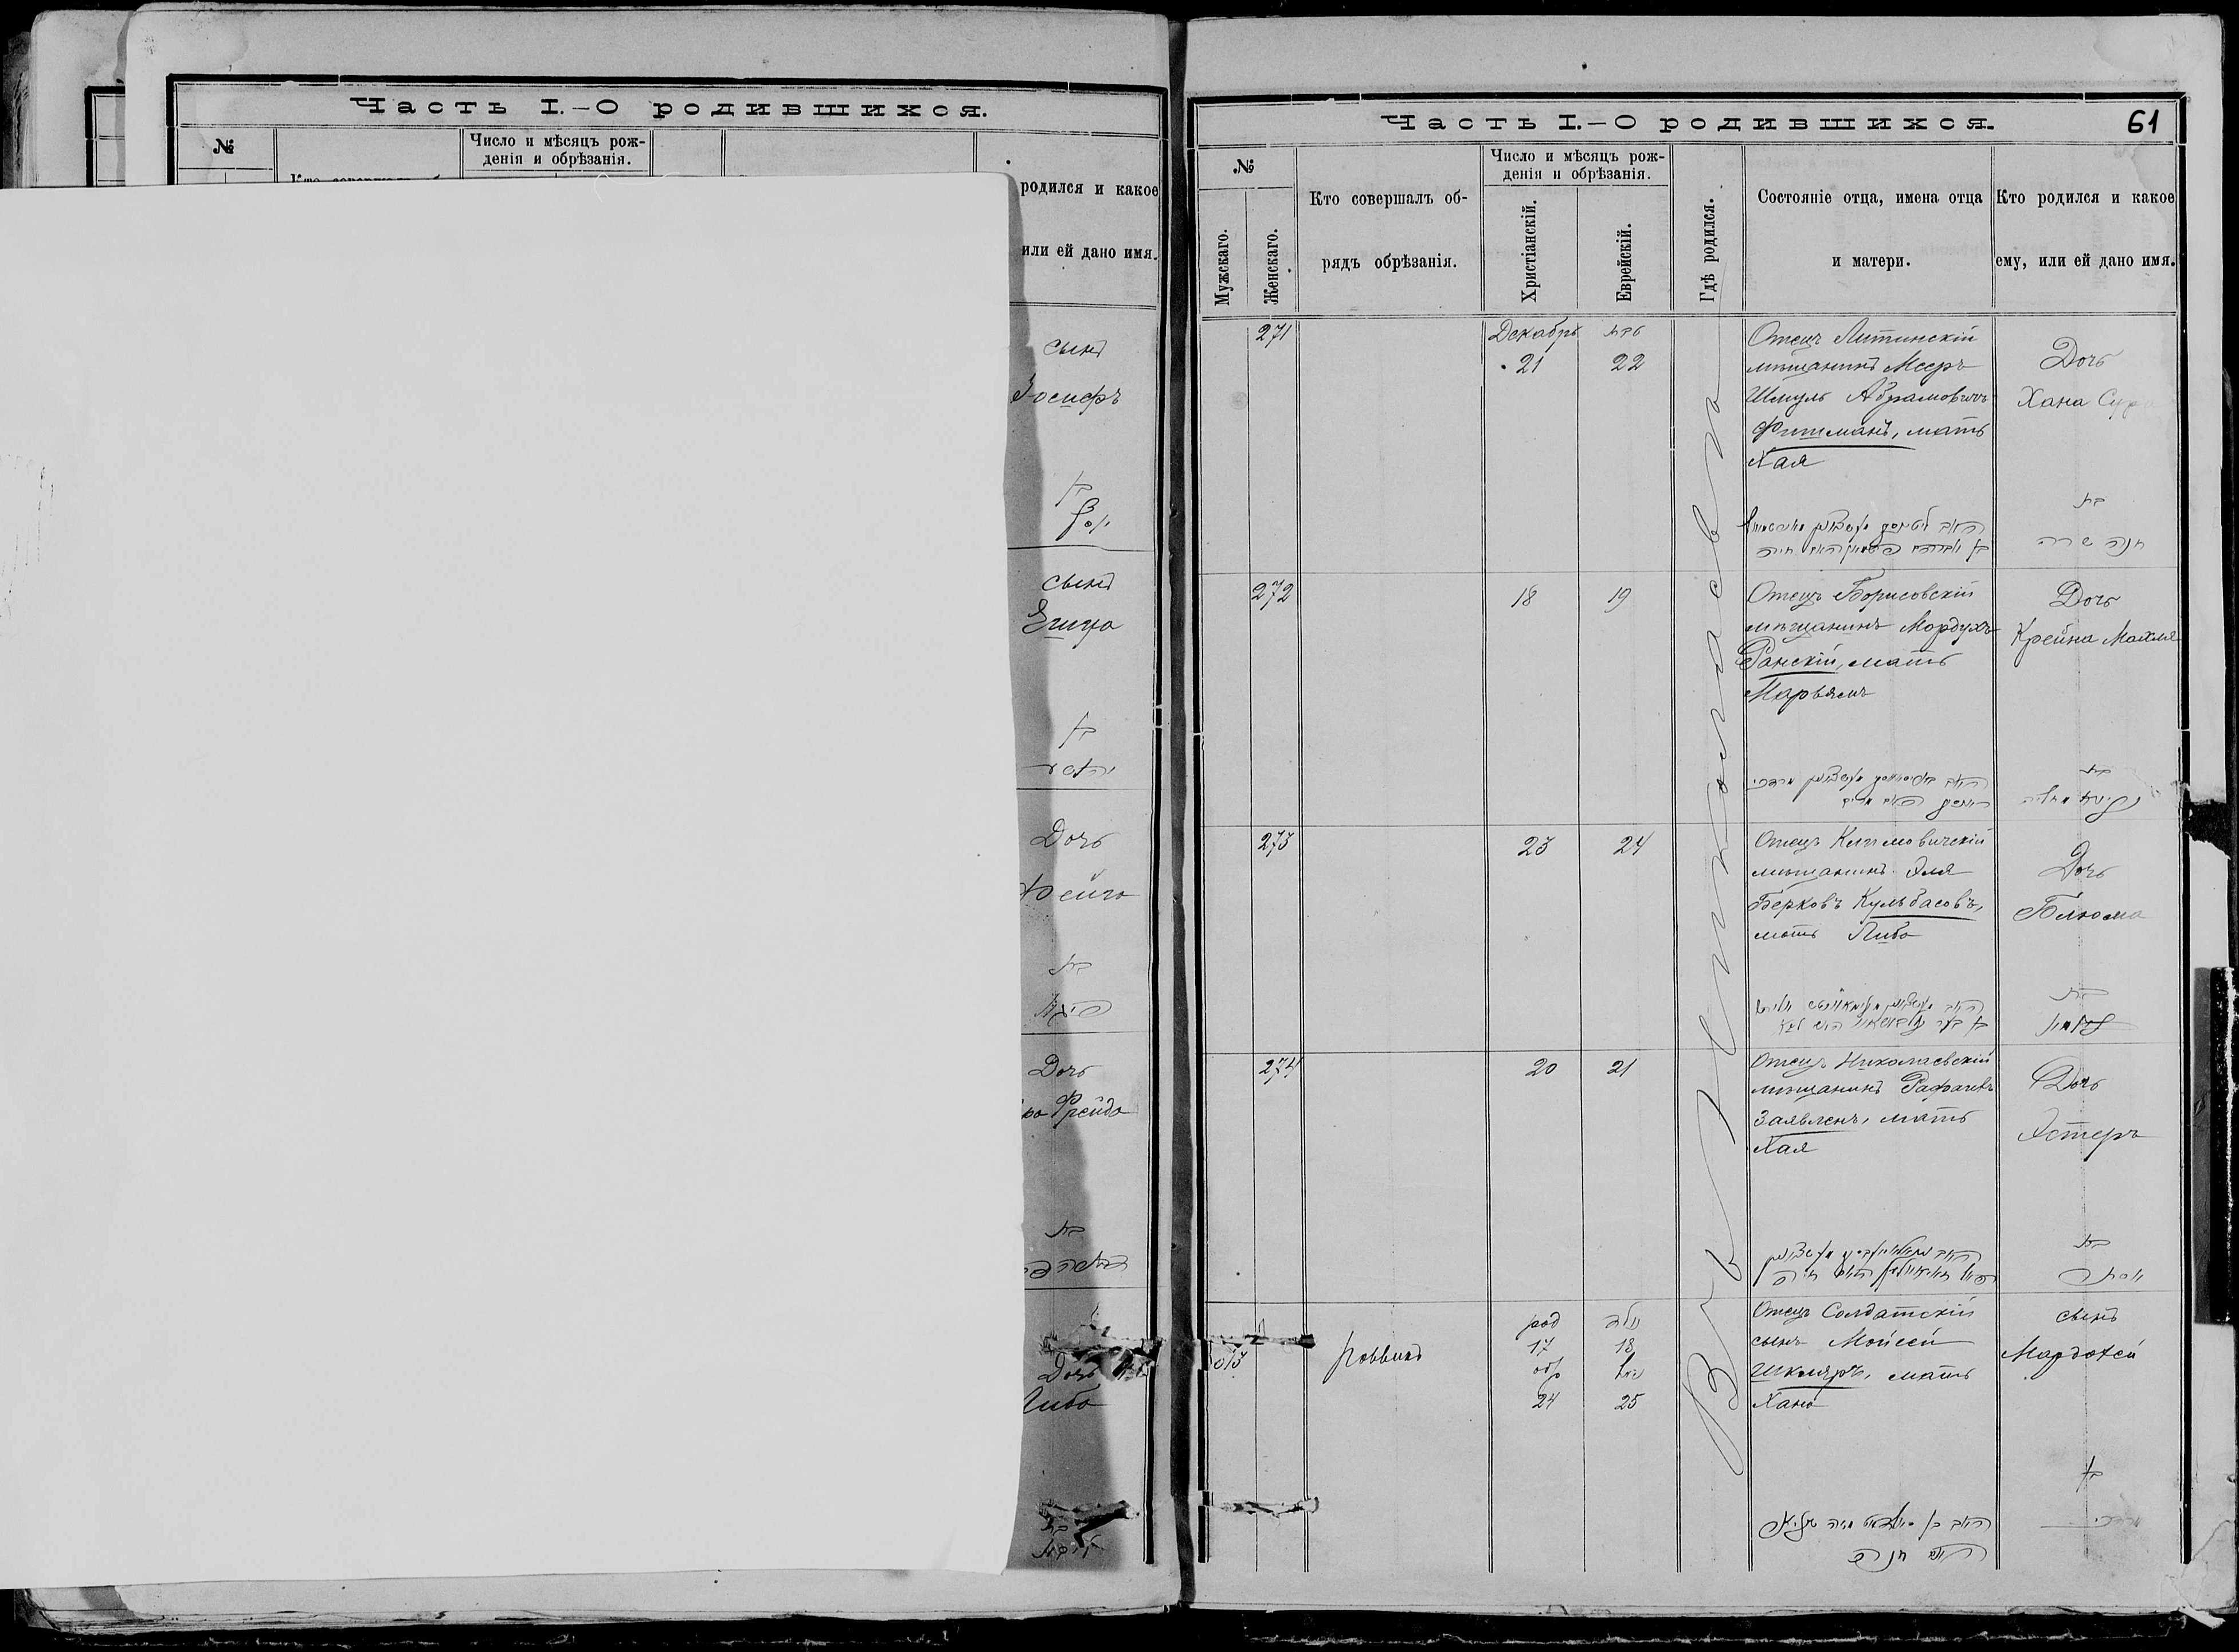 Часть I.–О родившихся.
№
Число и мѣсяцъ рож-
денія и обрѣзанія.
родился и какое
или ей дано имя.
сынъ
Іосифъ
בן
יוסף
сынъ
בן
Дочь
Фейга
בת
פייגא
Дочь
Фрейда
בת
Дочь
Либа
בת
Часть I.–О родившихся.
61
№
Мужскаго.
Женскаго.
Кто совершалъ об-
рядъ обрѣзанія.
Число и мѣсяцъ рож-
денія и обрѣзанія.
Христіанскій.
Еврейскій.
Гдѣ родился.
Состояніе отца, имена отца
и матери.
Кто родился и какое
ему, или ей дано имя.
Въ г Николаевѣ
271
Декабрь
טבת
21
22
Отецъ Литинскій
мѣщанинъ Мееръ
Шмуль Абрамовичъ
Фитманъ, мать
Хая
Дочь
Хана Сура
בת
חנה שרה
272
18
19
Отецъ Борисовскій
мѣщанинъ Мордухъ
Ранскій, мать
Марьямъ
Дочь
Крейна Махля
בת
273
23
24
Отецъ Климовичскій
мѣщанинъ Эля
Берковъ Кульбасовъ,
мать Либа
Дочь
Блюма
בת
בלומא
274
20
21
Отецъ Николаевскій
мѣщанинъ Рафаилъ
Заявленъ, мать
Хая
Дочь
Эстеръ
בת
אסתר
раввинъ
род
נולד
17
18
обр
נמול
24
25
Отецъ Солдатскій
сынъ Мойсей
Шкляръ, мать
Хана
сынъ
Мардохей
בן
מרדכי
האם חנה